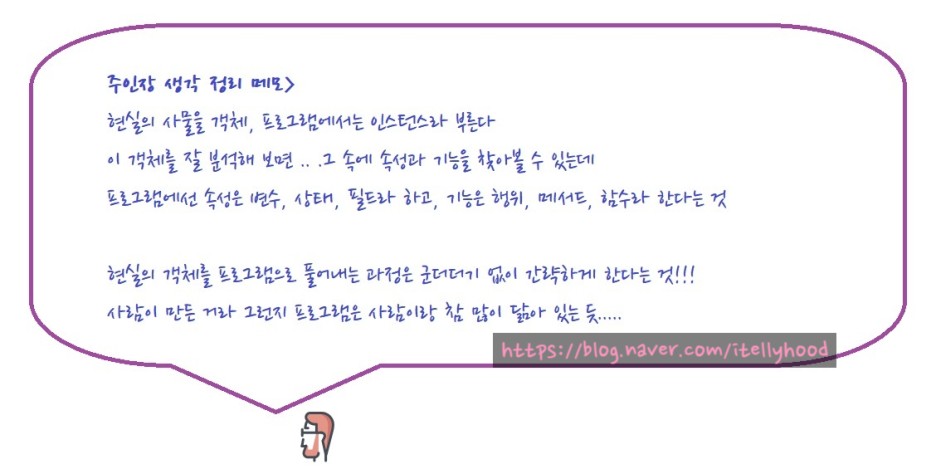 주인장 생각 정리 메모>
현실의 사물을 객체, 프로그램에서는 인스턴스라 부른다
이 객체를 잘 분석해 보면 .. .그 속에 속성과 기능을 찾아볼 수 있는데
프로그램에선 속성은 변수, 상태, 필드라 하고, 기능은 행위, 메서드, 함수라 한다는 것
현실의 객체를 프로그램으로 풀어내는 과정은 군더더기 없이 간략하게 한다는 것!!!
사람이 만든 거라 그런지 프로그램은 사람이랑 참 많이 닮아 있는 듯.....
https://blog.naver.com/itellyhood